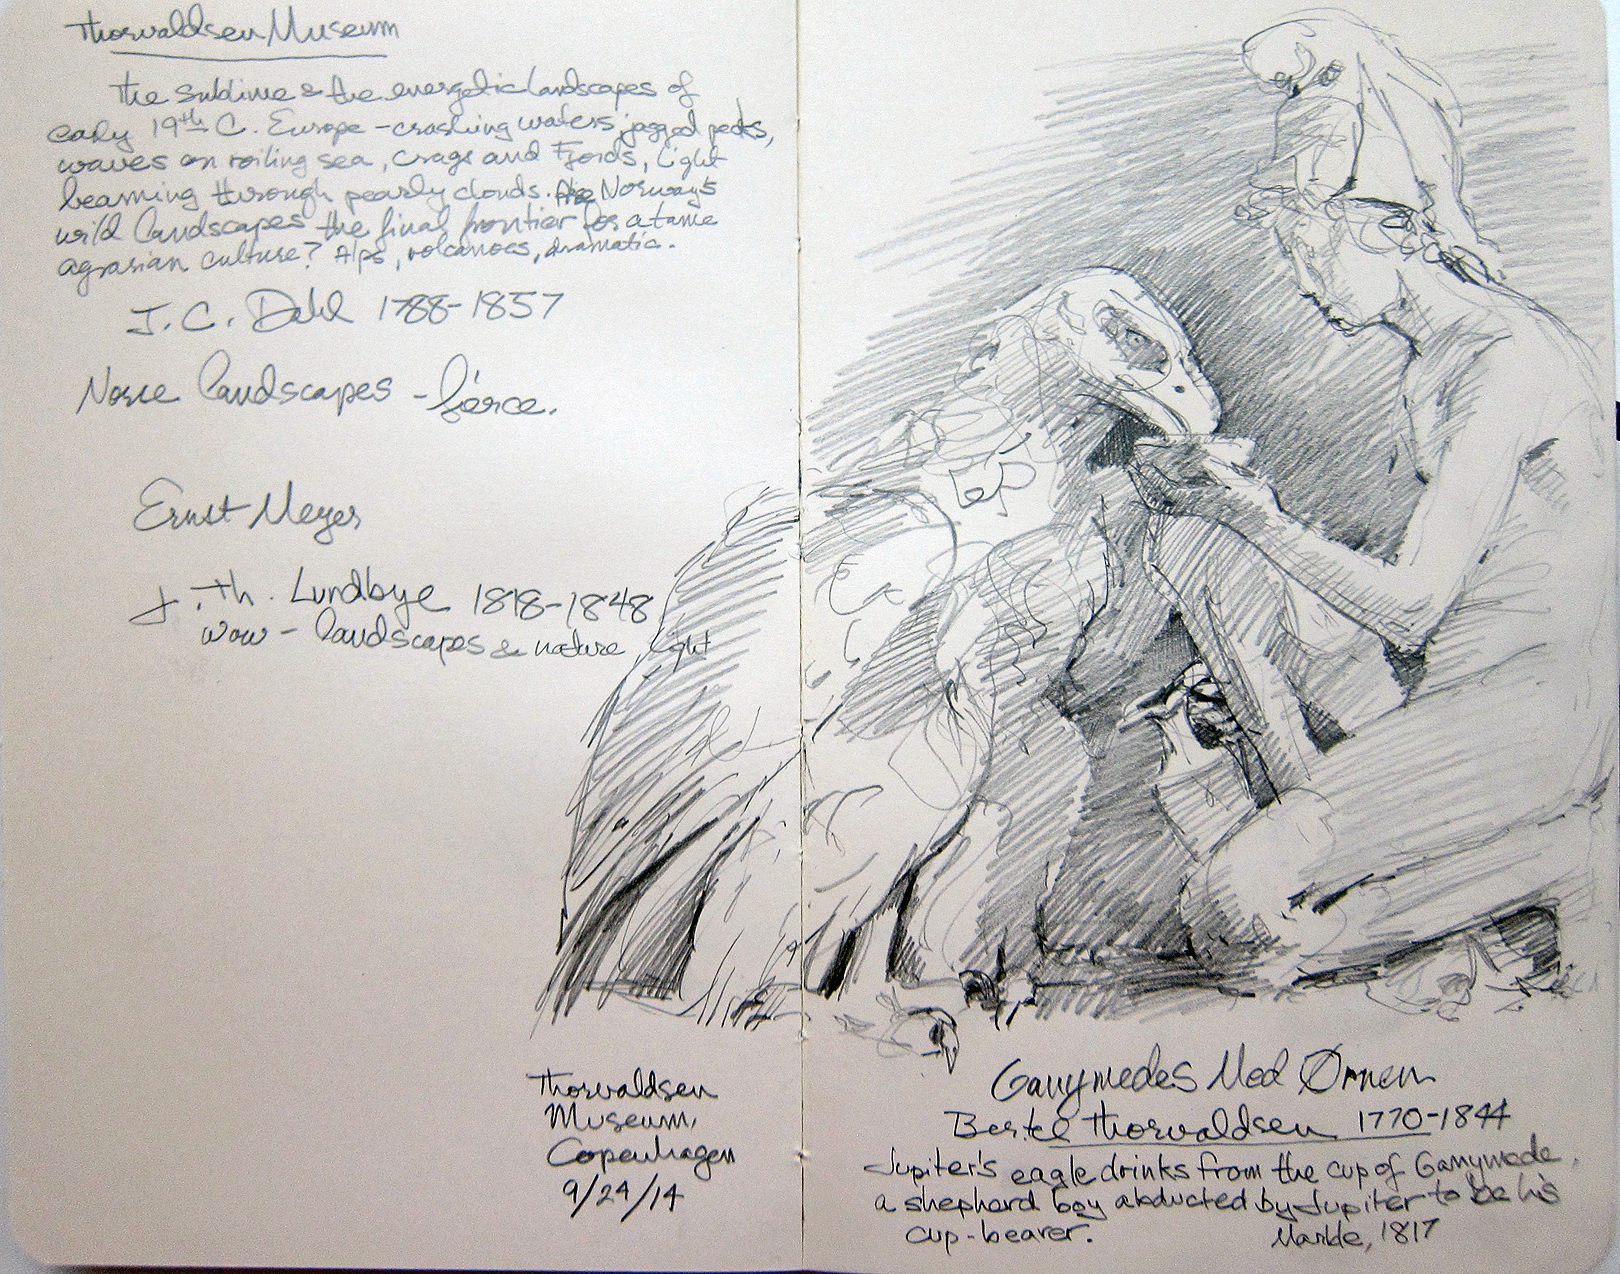 Thorvaldsen Museum
The sublime & the energetic landscapes of
early 19th C. Europe - crashing waters, jagged peaks,
waves on roiling sea, crags and Fjords, light
beaming through pearly clouds. Norway's
wild landscapes the final frontier for a tame
agrarian culture? Alps, volcanoes, dramatic.
J. C. Dahl 1788-1857
Norse landscapes - fierce.
Ernst Meyer
J. Th. Lundbye 1818-1848
wow - landscapes & nature, light
Thorvaldsen
Museum,
Copenhagen
9/24/14
Ganymedes Med Ørnen
Bertel Thorvaldsen 1770-1844
Jupiter's eagle drinks from the cup of Ganymede,
a shepherd boy abducted by Jupiter to be his
cup-bearer. Marble, 1817